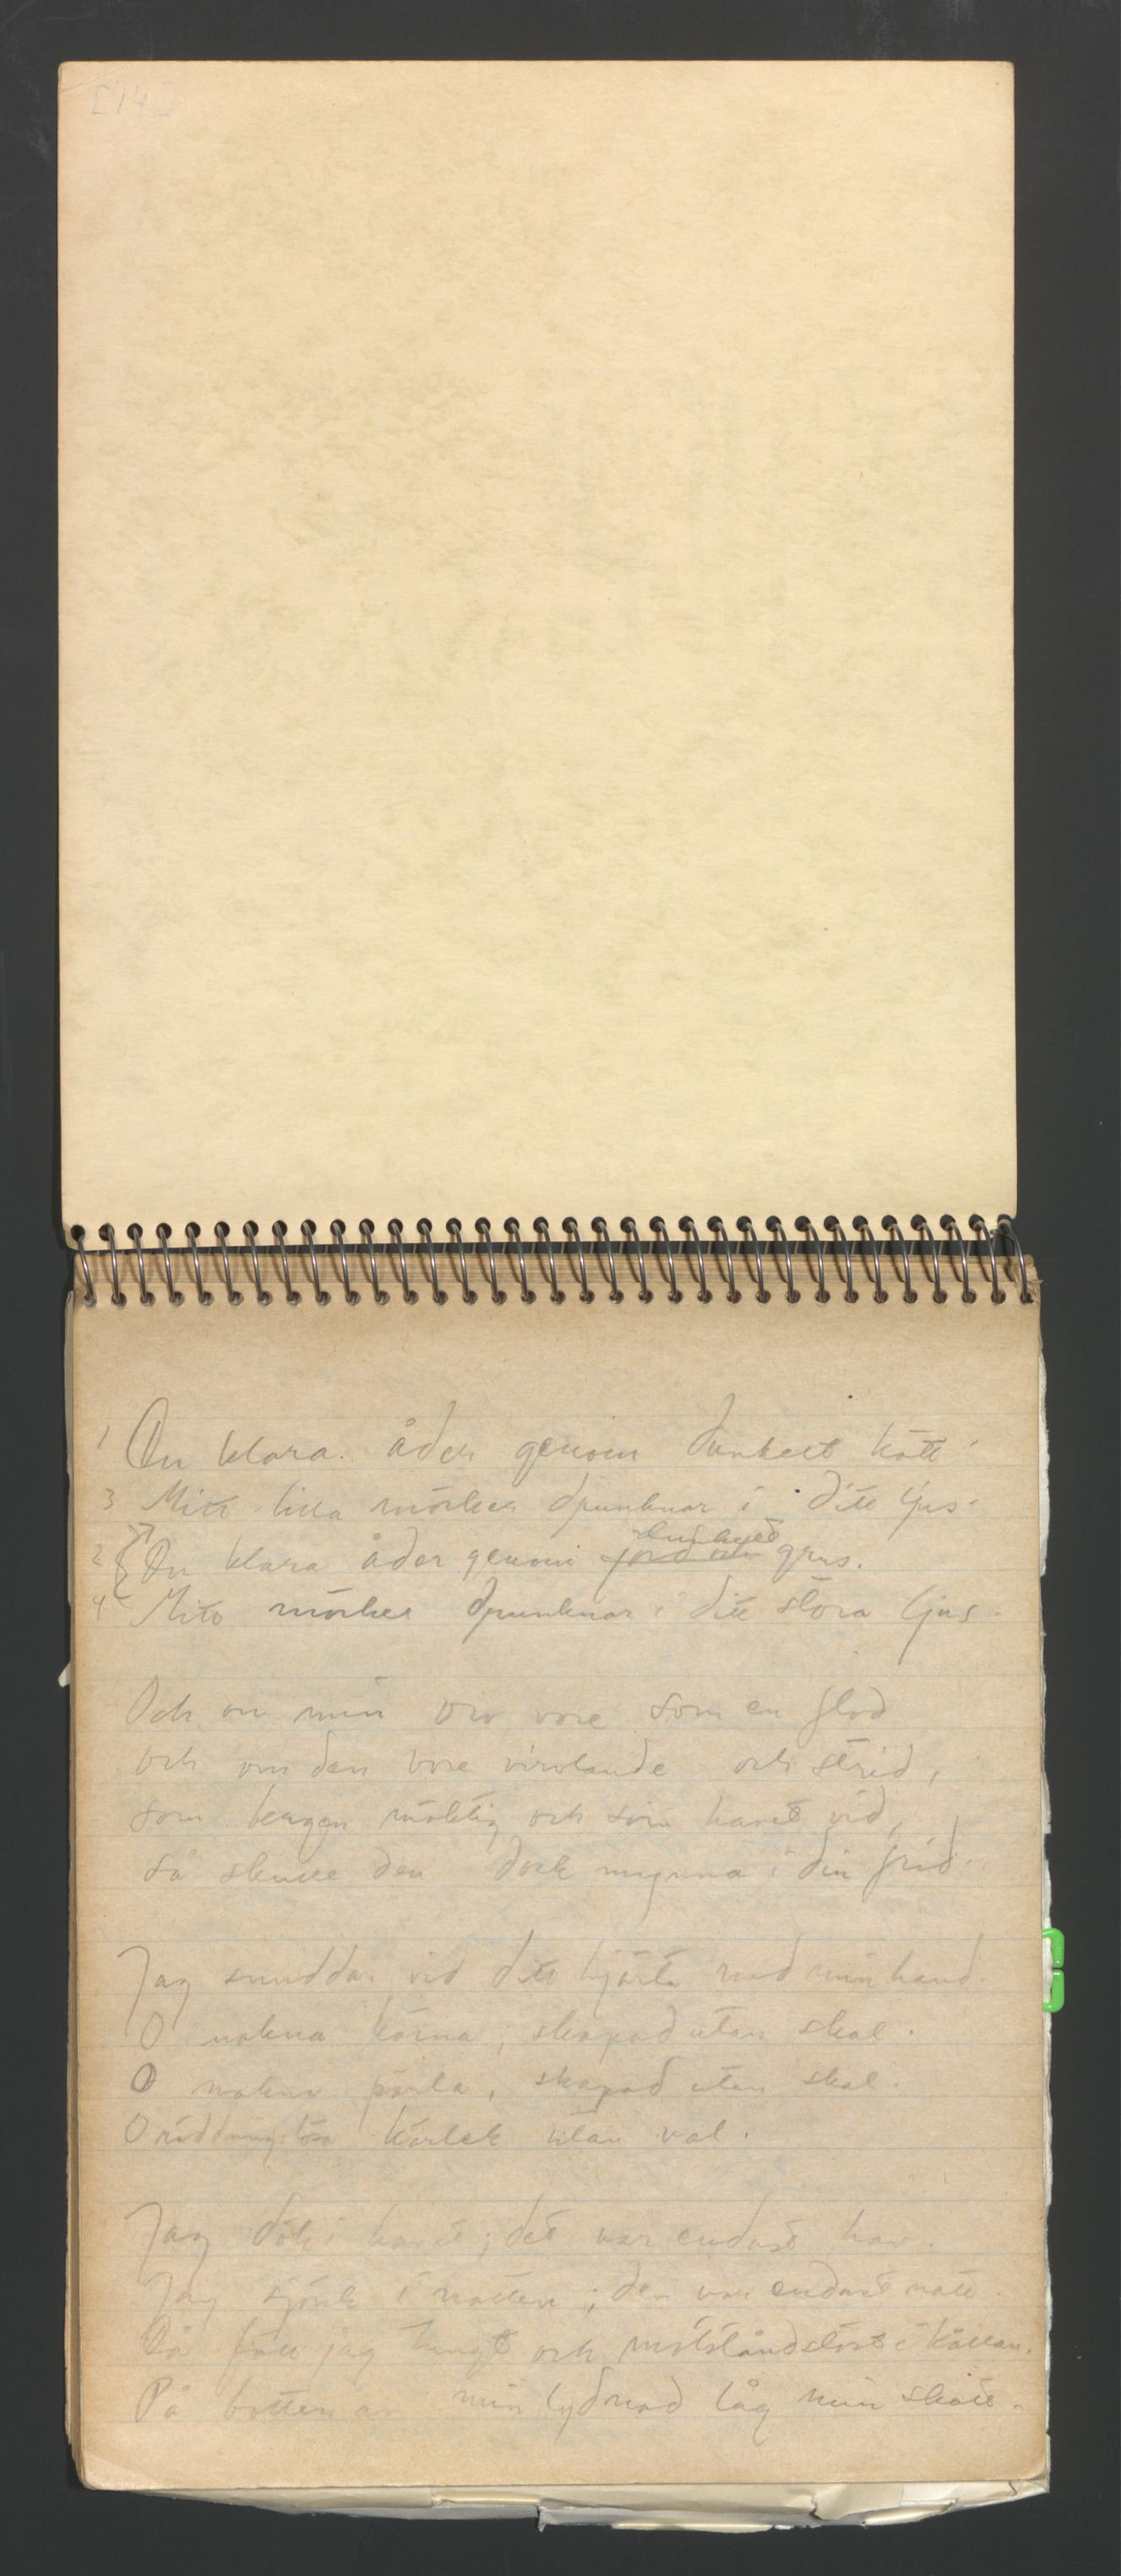 [14]
1 Du klara åder genom dunkelt kött
3 Mitt lilla mörker drunknar i ditt ljus.
2 Du klara åder genom jord och grus.
4 Mitt mörker drunknar i ditt stora ljus.
Och om min oro vore som en flod
och om den vore virvlande och strid,
som bergen mäktig och som havet vid,
så skulle den dock mynna i din frid.
Jag snuddar vid ditt hjärta med min hand.
O nakna kärna, skapad utan skal.
O nakna pärla, skapad utan skal.
O räddningslösa kärlek utan val.
Jag dök i havet; det var endast hav.
Jag sjönk i natten; den var endast natt.
Då föll jag tungt och motståndslöst i källan.
På botten av min lydnad låg min skatt.